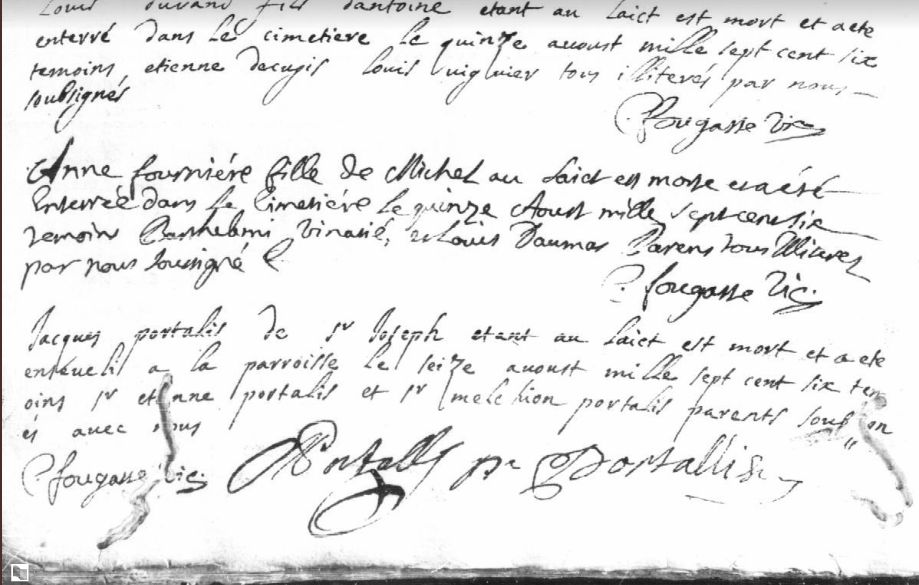 Louis durand fils dantoine etant au laict est mort et a ete
enterré dans le cimetiere le quinze auoust mille sept cent six
temoins etienne decugis louis uiguier tous illiterés par nous
soubsignés
Fougasse vic
Anne fourniére fille de Michel au laict est morte et a été
Enterrée dans le Cimetiére le quinze Aoust mille sept cent six
temoins Barthelemi et Louis Daumas Parens tous Illiteres
par nous soussigné
fougasse Vic.
Jacques portalis de sr Joseph etant au laict est mort et a ete
enseueli a la parroisse le seize auoust mille sept cent six tem
oins sr etienne portalis et sr melchion portalis parents soub on
és auec nous
fougasse vic. Portallis Portallis